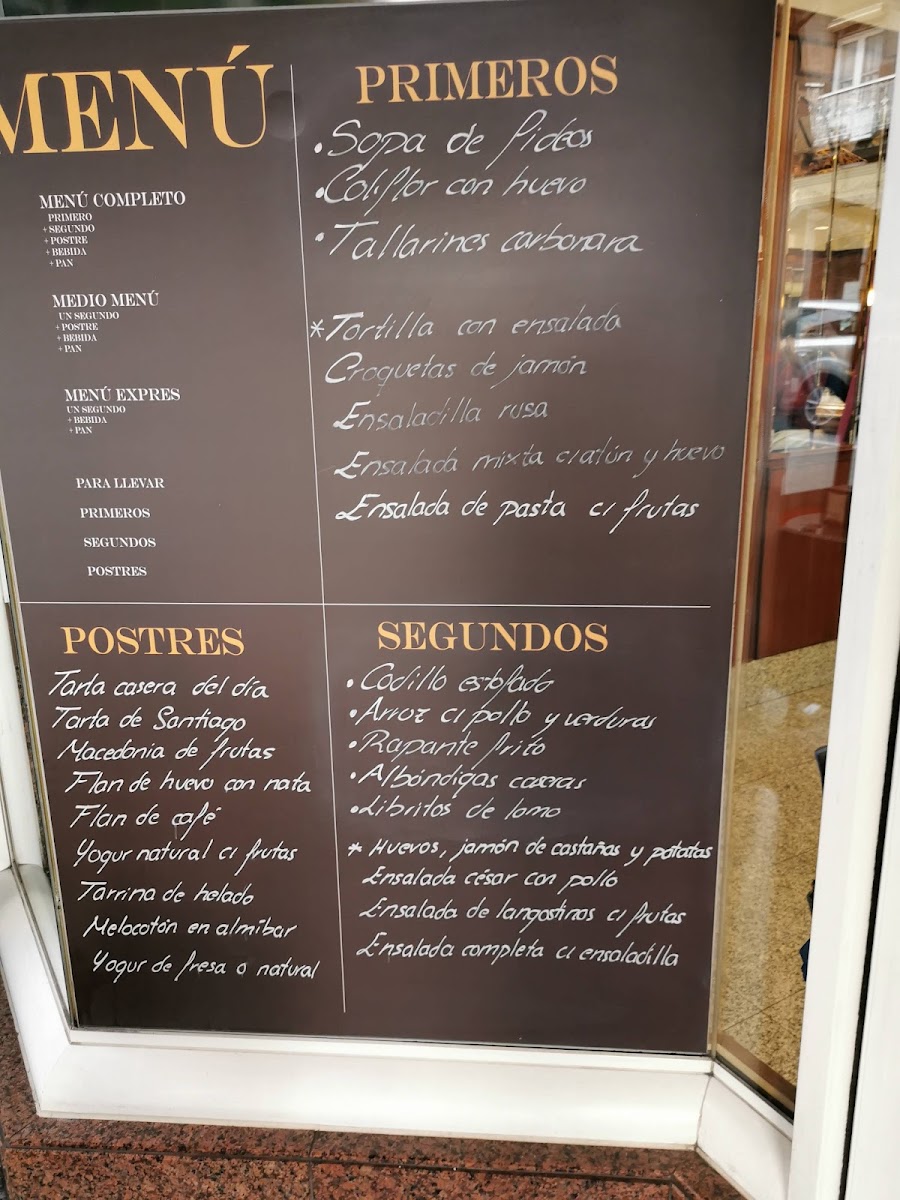 MENÚ
MENÚ COMPLETO
PRIMERO
+ SEGUNDO
+ POSTRE
+ BEBIDA
+ PAN
MEDIO MENÚ
UN SEGUNDO
+ POSTRE
+ BEBIDA
+ PAN
MENÚ EXPRES
UN SEGUNDO
+ BEBIDA
+ PAN
PARA LLEVAR
PRIMEROS
SEGUNDOS
POSTRES
PRIMEROS
• Sopa de fideos
• Coliflor con huevo
• Tallarines carbonara
* Tortilla con ensalada
Croquetas de jamón
Ensaladilla rusa
Ensalada mixta c/ atún y huevo
Ensalada de pasta c/ frutas
POSTRES
Tarta casera del día
Tarta de Santiago
Macedonia de frutas
Flan de huevo con nata
Flan de café
Yogur natural c/ frutas
Tarrina de helado
Melocotón en almíbar
Yogur de fresa o natural
SEGUNDOS
• Codillo estofado
• Arroz c/ pollo y verduras
• Rapante frito
• Albóndigas caseras
• Libritos de lomo
* Huevos, jamón de castañas y patatas
Ensalada césar con pollo
Ensalada de langostinos c/ frutas
Ensalada completa c/ ensaladilla